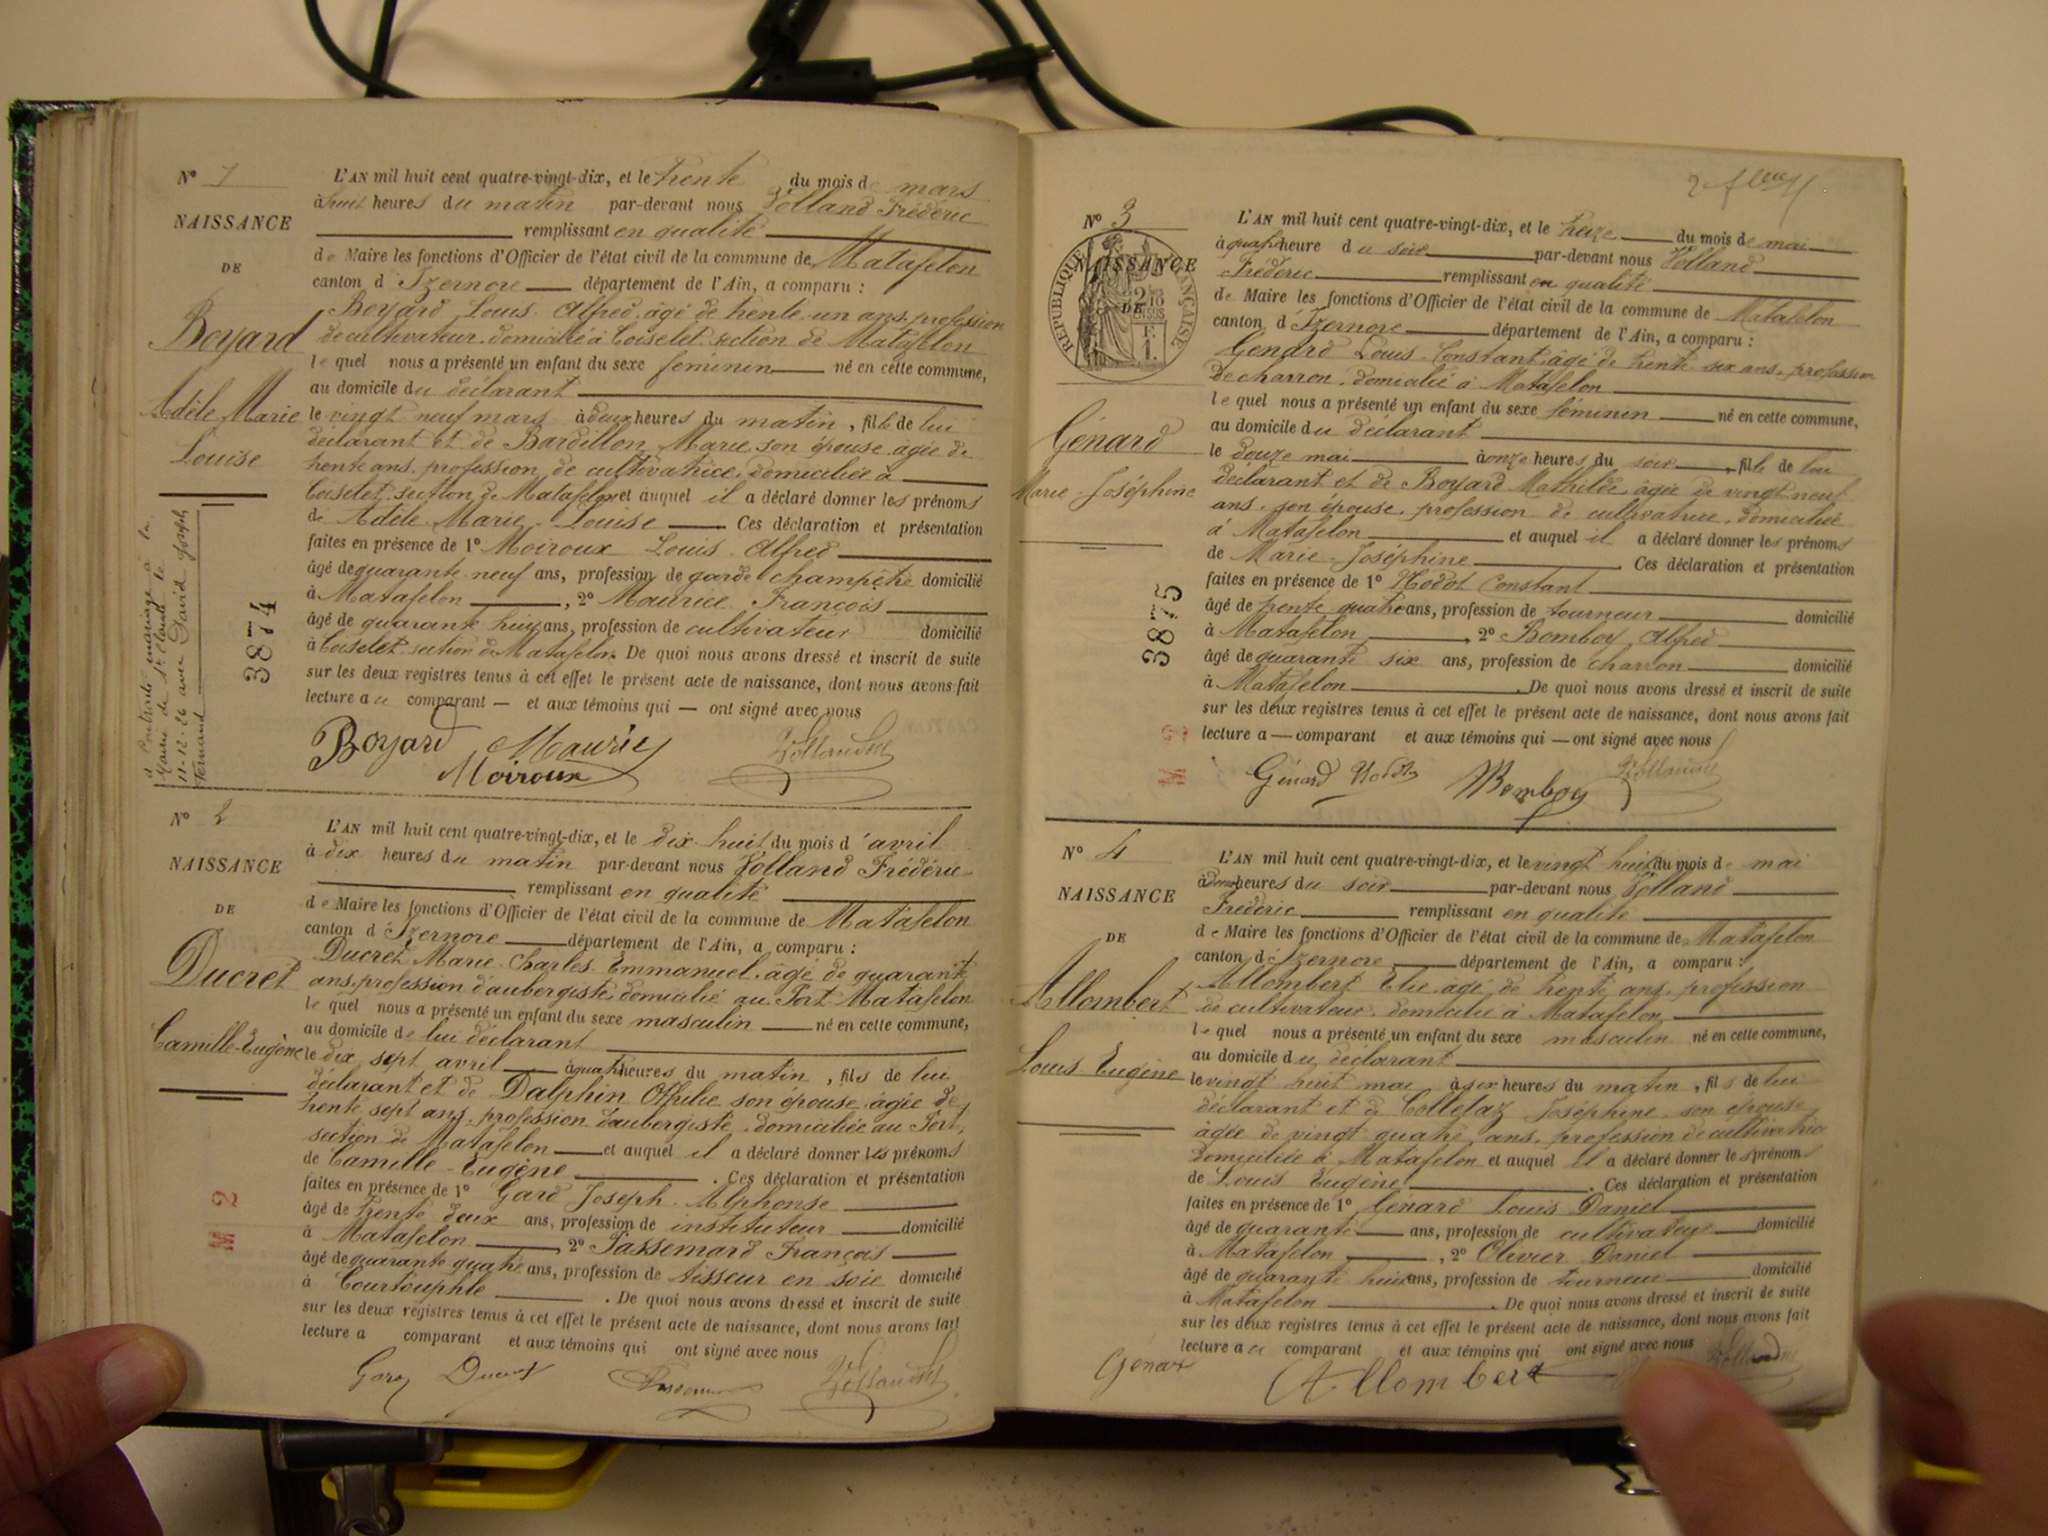 N° 1
NAISSANCE
DE
Boyard
Adèle Marie
Louise
a contracté mariage à la
Mairie de St Claude le
11-12-26 avec David Joseph
Fernand
3874
L'AN mil huit cent quatre-vingt-dix, et le trente du mois de mars
à huit heures du matin par-devant nous Volland Frédéric
remplissant en qualité
de Maire les fonctions d'Officier de l'état civil de la commune de Matafelon
canton d'Izernore département de l'Ain, a comparu :
Boyard Louis Alfred, âgé de trente un ans, profession
de cultivateur, domicilié à Coiselet section de Matafelon
lequel nous a présenté un enfant du sexe féminin né en cette commune,
au domicile du déclarant
le vingt neuf mars à deux heures du matin, fille de lui
déclarant et de Bardillon Marie son épouse âgée de
trente ans, profession de cultivatrice, domiciliée à
Coiselet section de Matafelon et auquel il a déclaré donner les prénoms
de Adèle Marie Louise Ces déclaration et présentation
faites en présence de 1° Moiroux Louis Alfred
âgé de quarante neuf ans, profession de garde champêtre domicilié
à Matafelon, 2° Maurice François
âgé de quarante huit ans, profession de cultivateur domicilié
à Coiselet section de Matafelon. De quoi nous avons dressé et inscrit de suite
sur les deux registres tenus à cet effet le présent acte de naissance, dont nous avons fait
lecture au comparant et aux témoins qui ont signé avec nous
Boyard Maurice Volland
Moiroux
N° 2
NAISSANCE
DE
Ducret
Camille-Eugène
M 2
L'AN mil huit cent quatre-vingt-dix, et le dix huit du mois d'avril
à dix heures du matin par-devant nous Volland Frédéric
remplissant en qualité
de Maire les fonctions d'Officier de l'état civil de la commune de Matafelon
canton d'Izernore département de l'Ain, a comparu :
Ducret Marie Charles Emmanuel, âgé de quarante
ans, profession d'aubergiste, domicilié au Port Matafelon
lequel nous a présenté un enfant du sexe masculin né en cette commune,
au domicile de lui déclarant
le dix sept avril à quatre heures du matin, fils de lui
déclarant et de Dalphin Offélie son épouse âgée de
trente sept ans, profession d'aubergiste, domiciliée au Port,
section de Matafelon et auquel il a déclaré donner les prénoms
de Camille-Eugène. Ces déclaration et présentation
faites en présence de 1° Gard Joseph Alphonse
âgé de trente deux ans, profession de instituteur domicilié
à Matafelon, 2° Passemard François
âgé de quarante quatre ans, profession de tisseur en soie domicilié
à Courtouphle. De quoi nous avons dressé et inscrit de suite
sur les deux registres tenus à cet effet le présent acte de naissance, dont nous avons fait
lecture a comparant et aux témoins qui ont signé avec nous
Gard Ducret Volland
N° 3
NAISSANCE
DE
RÉPUBLIQUE FRANÇAISE
Génard
Marie-Joséphine
3875
M 3
L'AN mil huit cent quatre-vingt-dix, et le treize du mois de mai
à quatre heure du soir par-devant nous Volland
Frédéric remplissant en qualité
de Maire les fonctions d'Officier de l'état civil de la commune de Matafelon
canton d'Izernore département de l'Ain, a comparu :
Génard Louis Constant, âgé de trente six ans, profession
de charron, domicilié à Matafelon
lequel nous a présenté un enfant du sexe féminin né en cette commune,
au domicile du déclarant
le douze mai à onze heures du soir, fille de lui
déclarant et de Boyard Mathilde, âgée de vingt neuf
ans, son épouse, profession de cultivatrice, domiciliée
à Matafelon et auquel il a déclaré donner les prénoms
de Marie-Joséphine. Ces déclaration et présentation
faites en présence de 1° Hodot Constant
âgé de trente quatre ans, profession de tourneur domicilié
à Matafelon, 2° Bomboy Alfred
âgé de quarante six ans, profession de charron domicilié
à Matafelon. De quoi nous avons dressé et inscrit de suite
sur les deux registres tenus à cet effet le présent acte de naissance, dont nous avons fait
lecture a comparant et aux témoins qui ont signé avec nous
Génard Hodot Bomboy Volland
N° 4
NAISSANCE
DE
Allombert
Louis Eugène
L'AN mil huit cent quatre-vingt-dix, et le vingt huit du mois de mai
heures du soir par-devant nous Volland
Frédéric remplissant en qualité
de Maire les fonctions d'Officier de l'état civil de la commune de Matafelon
canton d'Izernore département de l'Ain, a comparu :
Allombert Elie âgé de trente ans, profession
de cultivateur, domicilié à Matafelon
lequel nous a présenté un enfant du sexe masculin né en cette commune,
au domicile du déclarant
le vingt huit mai à six heures du matin, fils de lui
déclarant et de Colletaz Joséphine son épouse
âgée de vingt quatre ans, profession de cultivatrice
domiciliée à Matafelon et auquel il a déclaré donner les prénoms
de Louis Eugène. Ces déclaration et présentation
faites en présence de 1° Génard Louis Daniel
âgé de quarante ans, profession de cultivateur domicilié
à Matafelon, 2° Olivier Daniel
âgé de quarante huit ans, profession de tourneur domicilié
à Matafelon. De quoi nous avons dressé et inscrit de suite
sur les deux registres tenus à cet effet le présent acte de naissance, dont nous avons fait
lecture au comparant et aux témoins qui ont signé avec nous
Génard Allombert Volland